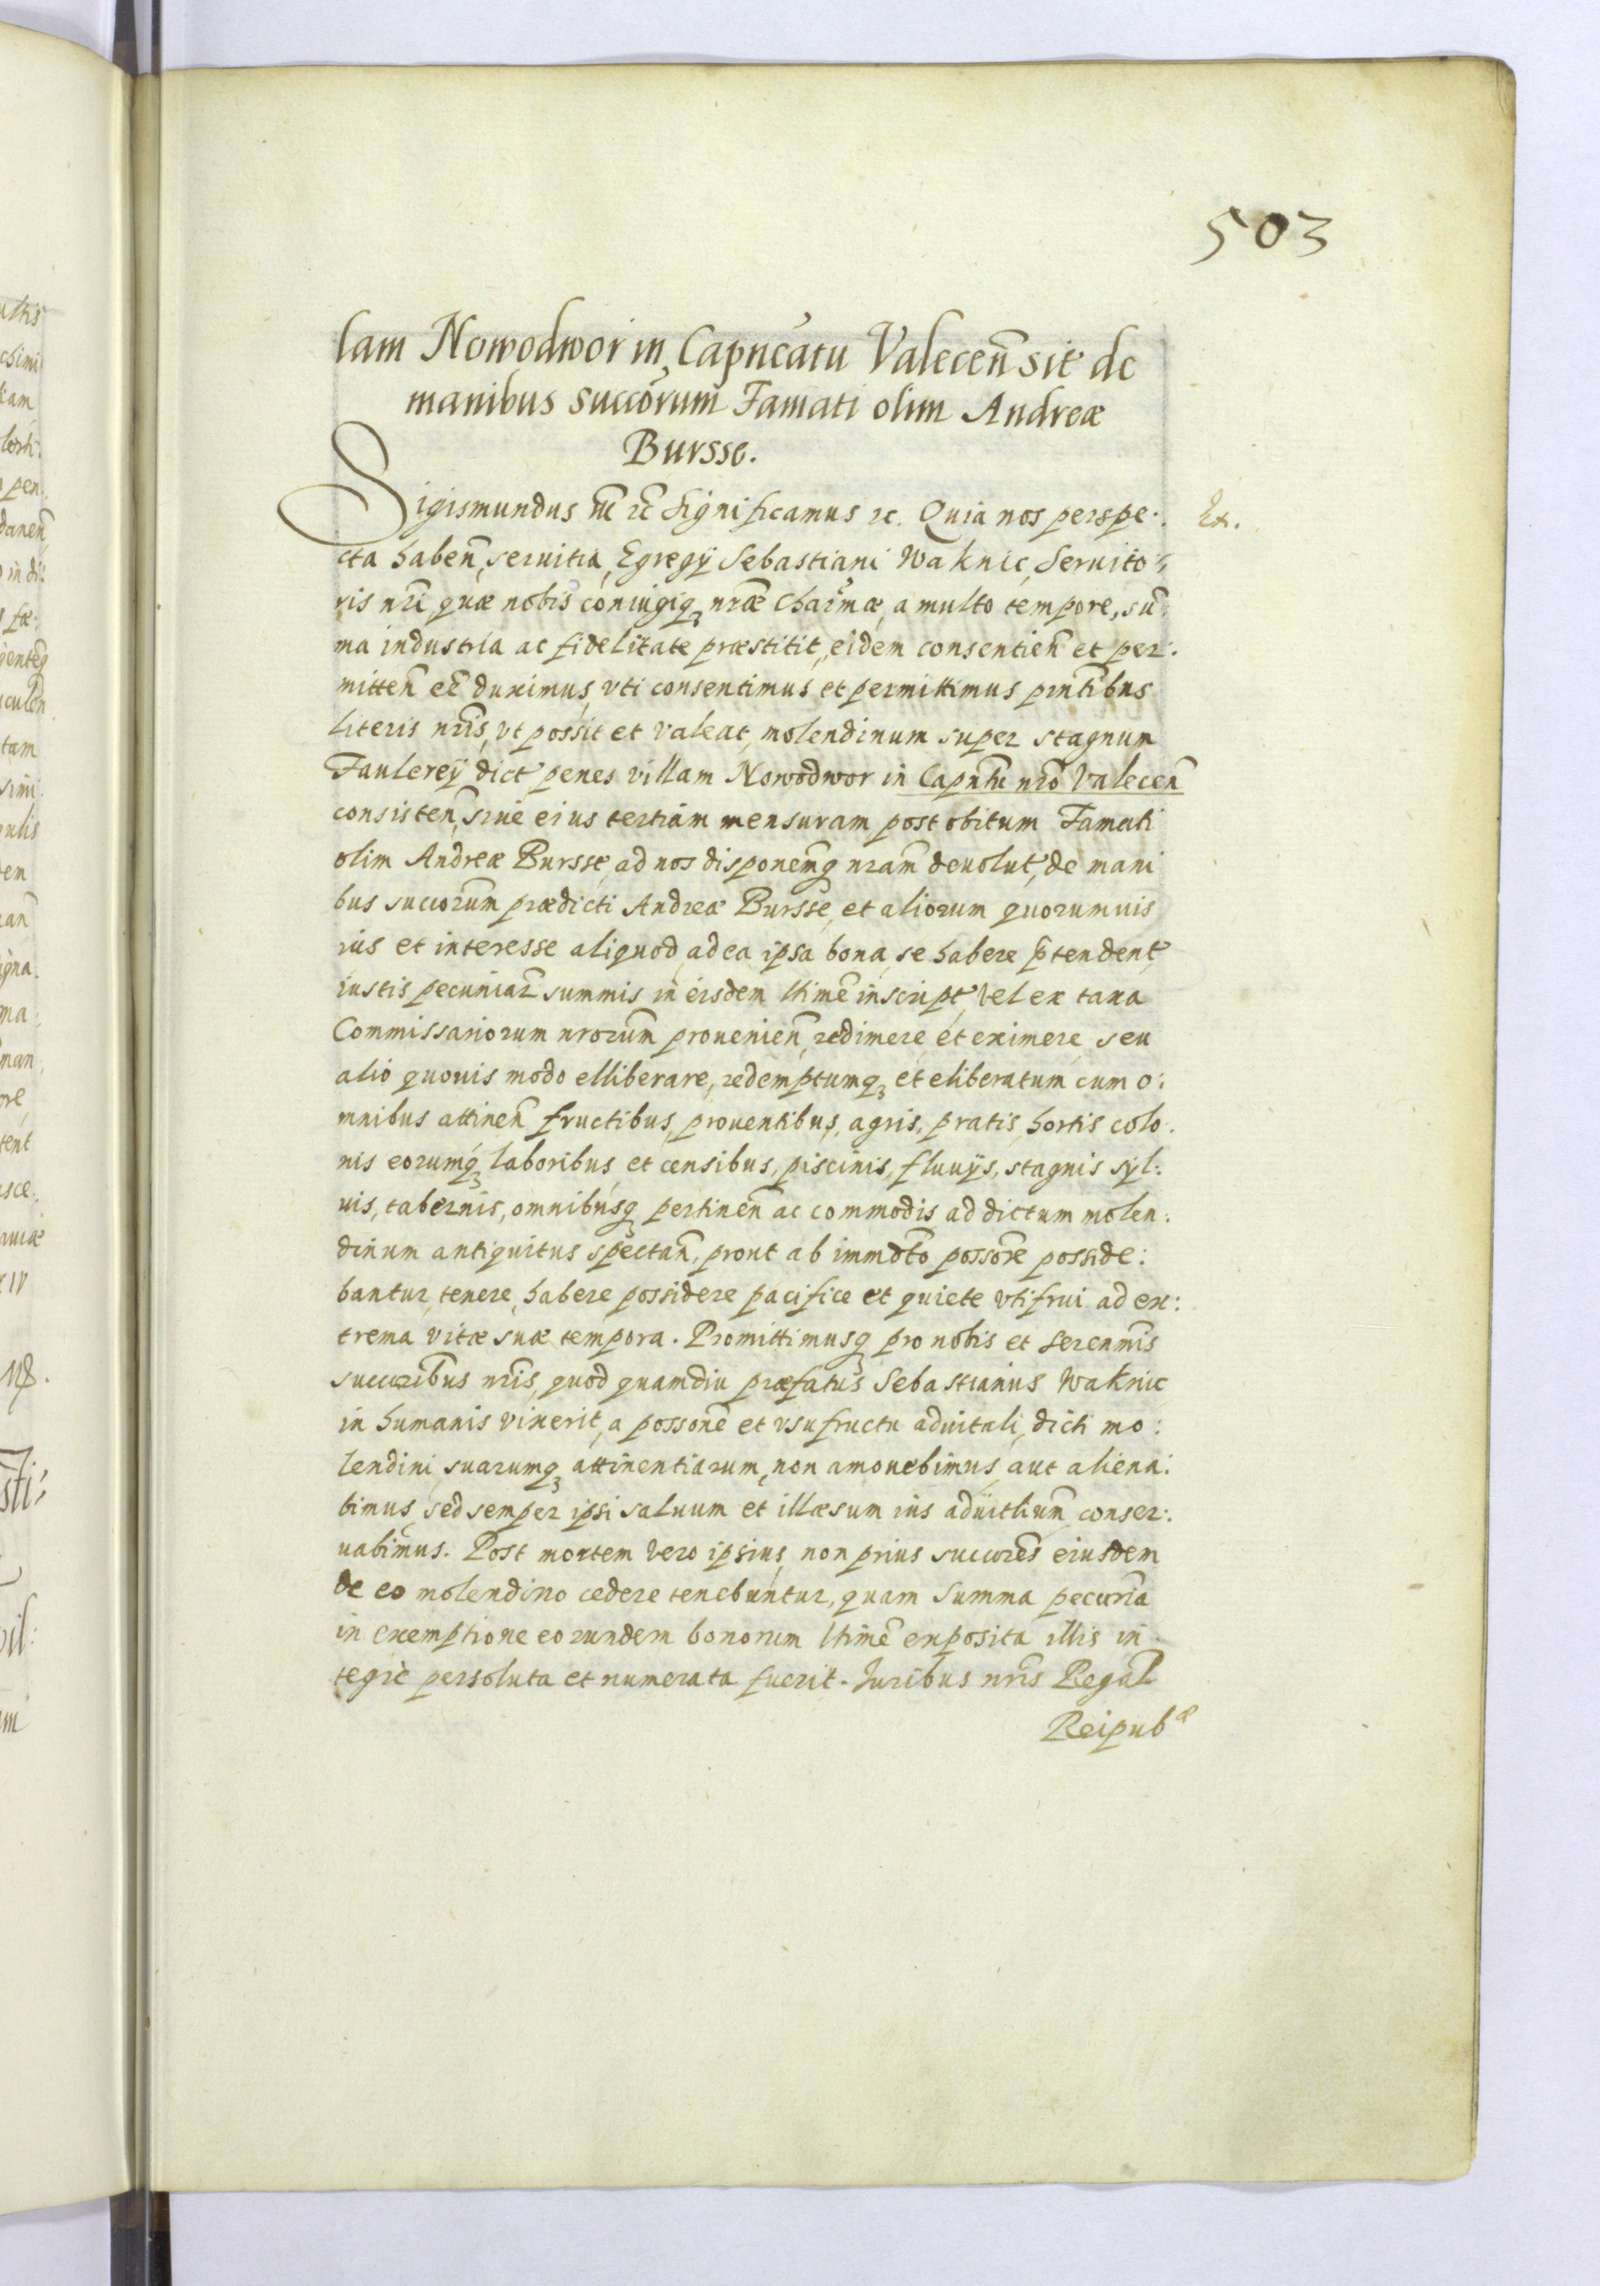 503
lam Nowodwor in Capncatu Valecen̄ sit de
manibus succōrum Famati olim Andreæ
Bursse.
Sigismundus III rc̄ Significamus rc. Quia nos perspe:
Ex.
cta haben̄, seruitia, Egregÿ Sebastiani Waknic, Seruito:
ris nr̄i, quæ nobis coniugiq₃ nr̄æ Char̄mæ, a multo tempore, sū:
ma industria ac fidelitate præstitit, eidem consentien̄ et per:
mitten̄ eē duximus, vti consentimus et permittimus pn̄tibus
literis nr̄is, vt possit et valeat, molendinum super stagnum
Faulereÿ dict̄ penes villam Nowodwor in Capn̄tu nr̄o Valecen̄
consisten̄, siue eius tertiam mensuram post obitum Famati
olim Andreæ Bursse, ad nos disponem̄q nr̄am deuolut̄, de mani
bus succorum̄ prædicti Andreæ Bursse, et aliorum quorumuis
ius et interesse aliquod, ad ea ipsa bona, se habere p̄tendent̄,
iustis pecuniar̄ summis in eisdem ltimē inscript̄, vel ex taxa
Commissariorum nrorum̄ prouenien̄, redimere et eximere, seu
alio quouis modo elliberare, redemptumq₃ et eliberatum cum o:
mnibus attinen̄ fructibus, prouentibus, agris, pratis, hortis colo.
nis eorumq₃ laboribus et censibus, piscinis, fluuÿs, stagnis syl:
uis, tabernis, omnibusq₃ pertinen̄ ac commodis ad dictum molen:
dinum antiquitus spectan̄, prout ab imm̄dto possōre posside:
bantur, tenere, habere possidere pacifice et quiete vtifrui ad ex:
trema vitæ suæ tempora. Promittimusq₃ pro nobis et Serenm̄is
succoribus nr̄is, quod quamdiu præfatus Sebastianus Waknic
in humanis vixerit, a possonē et vsufructu aduitali, dicti mo:
lendini, suarumq₃ attinentiarum, non amouebimus, aut aliena:
bimus, sed semper ipsi saluum et illæsum ius aduitlium̄ conser:
uabimus. Post mortem vero ipsius, non prius succorēs eiusdem
de eo molendino cedere tenebuntur, quam Summa pecun̄ia
in exemptione eorundem bonorum ltimē exposita illis in
tegrē persoluta et numerata fuerit. Juribus nr̄is Regal̄
Reipubᵃᵉ